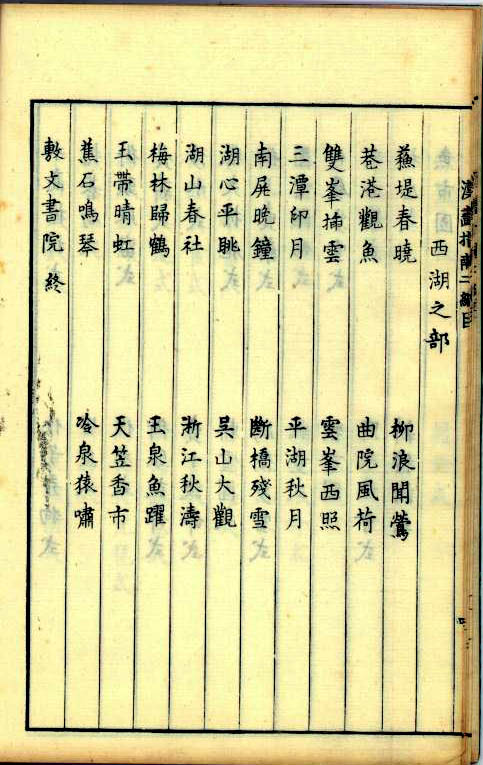 西湖之部
蘇堤春曉 柳浪聞鶯
巷港觀魚 曲院風荷
雙峯揷雲 雲峯西照
三潭印月 平湖秋月
南屏晚鐘 斷橋殘雪
湖心平眺 吳山大觀
湖山春社 浙江秋濤
梅林歸鶴 玉泉魚躍
玉帶晴虹 天笠香市
蕉石鳴琴 冷泉猿嘯
敷文書院終